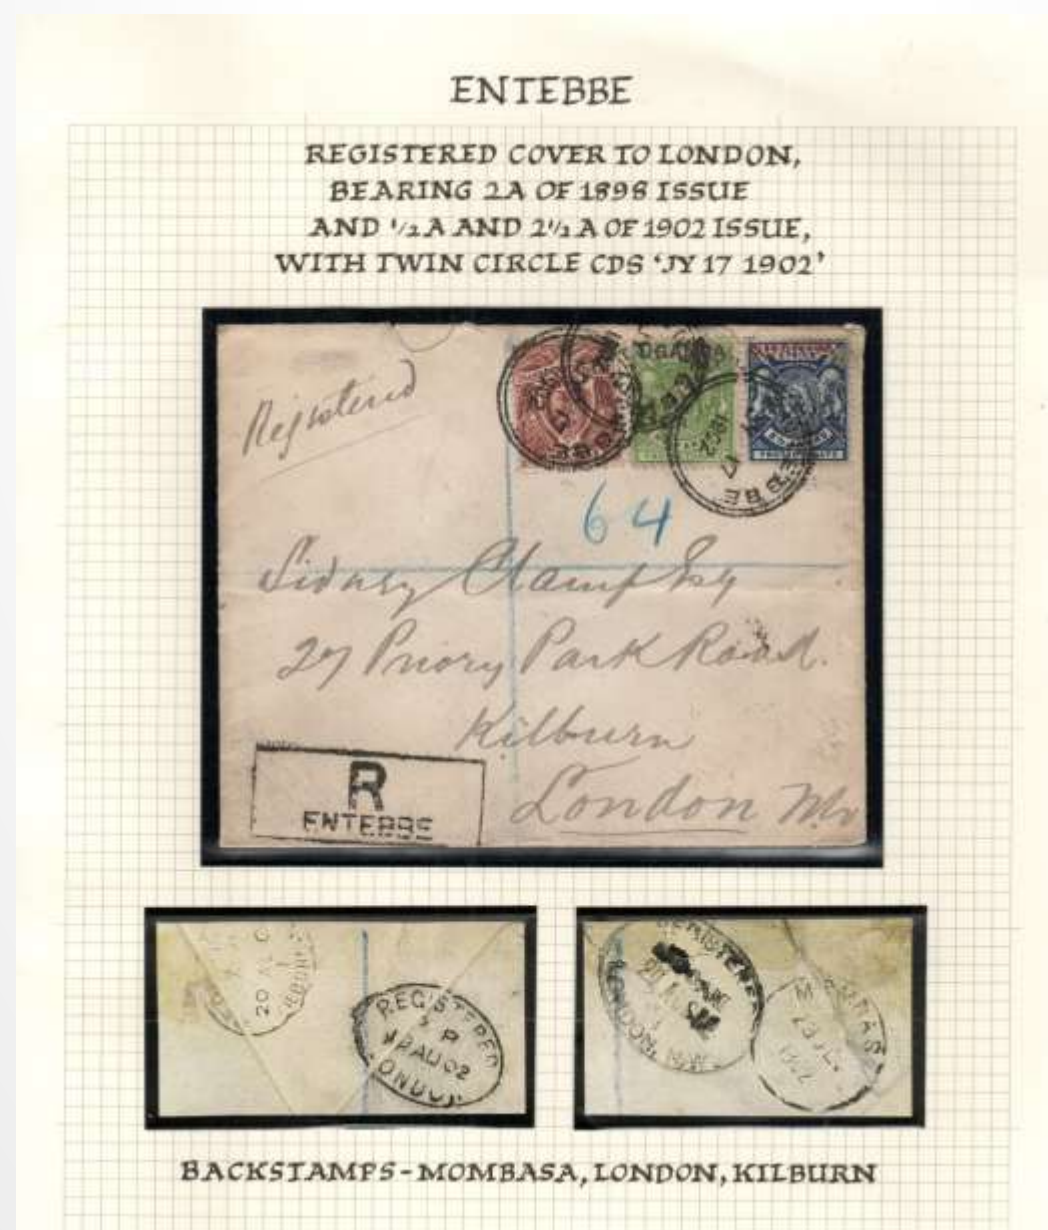 ENTEBBE
REGISTERED COVER TO LONDON,
BEARING 2A OF 1898 ISSUE
AND 1/2 A AND 2 1/2 A OF 1902 ISSUE,
WITH TWIN CIRCLE CDS 'JY 17 1902'
Registered
UGANDA
1902
17
EBBE
1902
17
EBBE
64
Sidney Clamp Esq
27 Priory Park Road.
Kilburn
London
R
ENTEBBE
20 AU
REGISTERED
AU 02
LONDON
REGISTERED
LONDON
M
1902
BACKSTAMPS - MOMBASA, LONDON, KILBURN